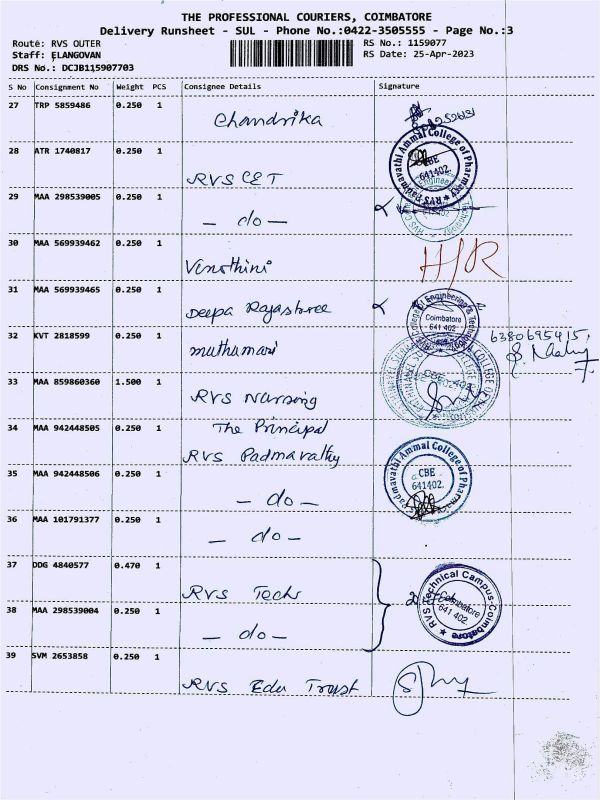 THE PROFESSIONAL COURIERS, COIMBATORE
Delivery Runsheet - SUL - Phone No.:0422-3505555 - Page No.:3
Route: RVS OUTER
RS No.: 1159077
Staff: ELANGOVAN
RS Date: 25-Apr-2023
DRS No.: DCJB115907703
S No Consignment No Weight PCS Consignee Details Signature
27 TRP 5859486 0.250 1 Chandrika
28 ATR 1740817 0.250 1 RVS CET
29 MAA 298539005 0.250 1 — do —
30 MAA 569939462 0.250 1 Vinothini
31 MAA 569939465 0.250 1 Deepa Rajashree
32 KVT 2818599 0.250 1 muthumari
6380695915
33 MAA 859860360 1.500 1 RVS Nursing
34 MAA 942448505 0.250 1 The Principal
RVS Padmavathy
35 MAA 942448506 0.250 1 — do —
36 MAA 101791377 0.250 1 — do —
37 DDG 4840577 0.470 1 RVS Techs
38 MAA 298539004 0.250 1 — do —
39 SVM 2653858 0.250 1 RVS Edu Trust
Padmavathi Ammal College of Pharmacy RVS
CBE
641402
College of Engineering & Technology
Coimbatore
641 402
Padmavathi Ammal College of Pharmacy
CBE
641402
RVS Technical Campus-Coimbatore
Coimbatore
641 402